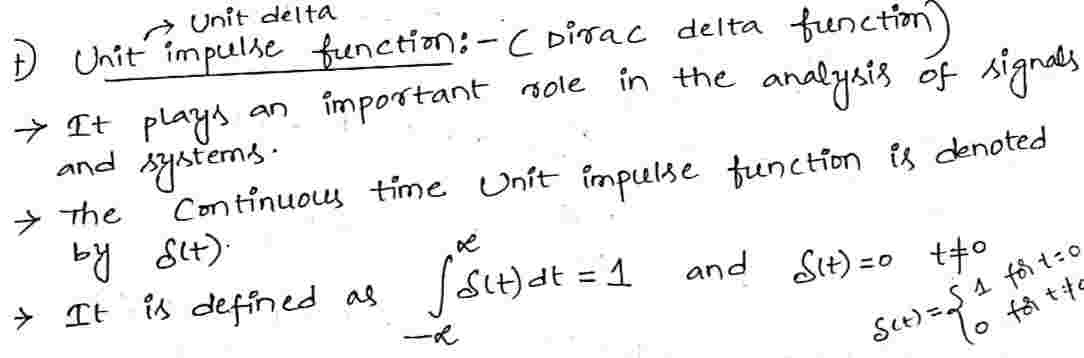 → Unit delta
1) Unit impulse function:- (Dirac delta function)
→ It plays an important role in the analysis of signals
and systems.
→ The Continuous time Unit impulse function is denoted
by δ(t).
→ It is defined as ∫_{-∞}^{∞} δ(t) dt = 1 and δ(t) = 0 t≠0
δ(t) = { 1 for t=0
0 for t≠0